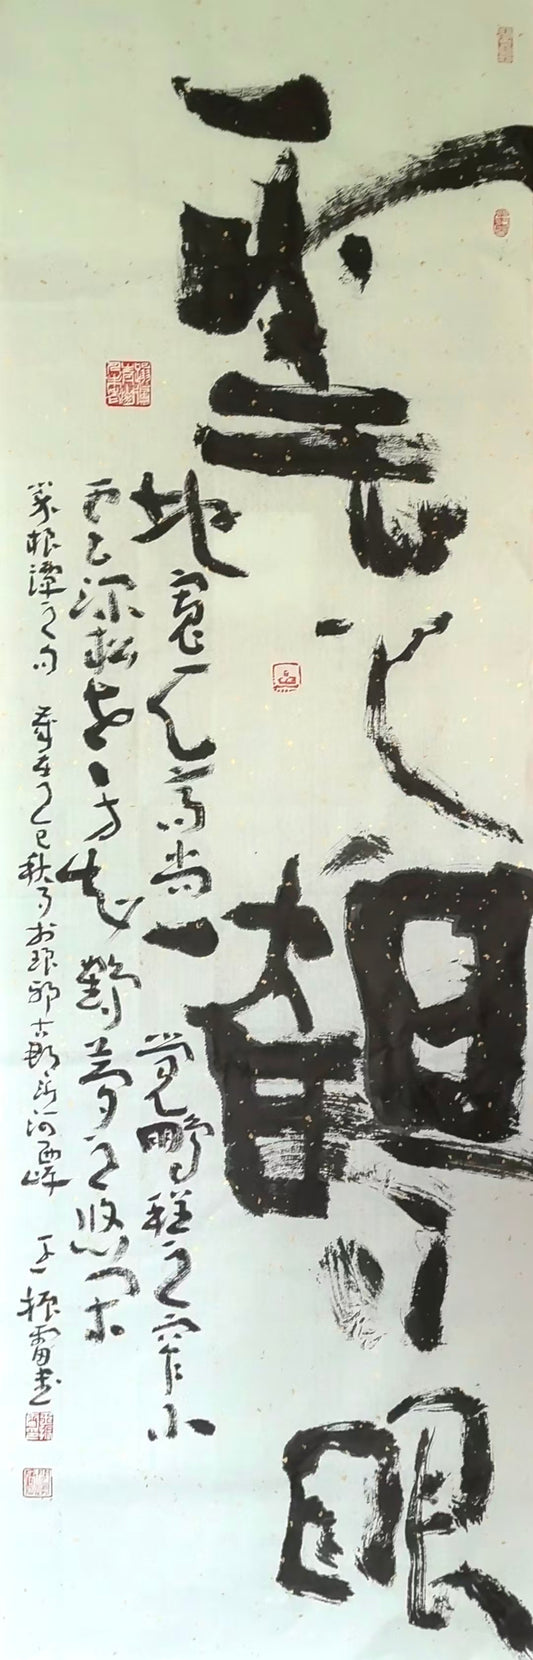 雲眼
地寬天高尚覺鵬程之窄小
雲深松老方知鶴夢之悠閑
菜根譚之句 歲在乙巳秋月於琅邪古郡沂河西岸 王振雷書